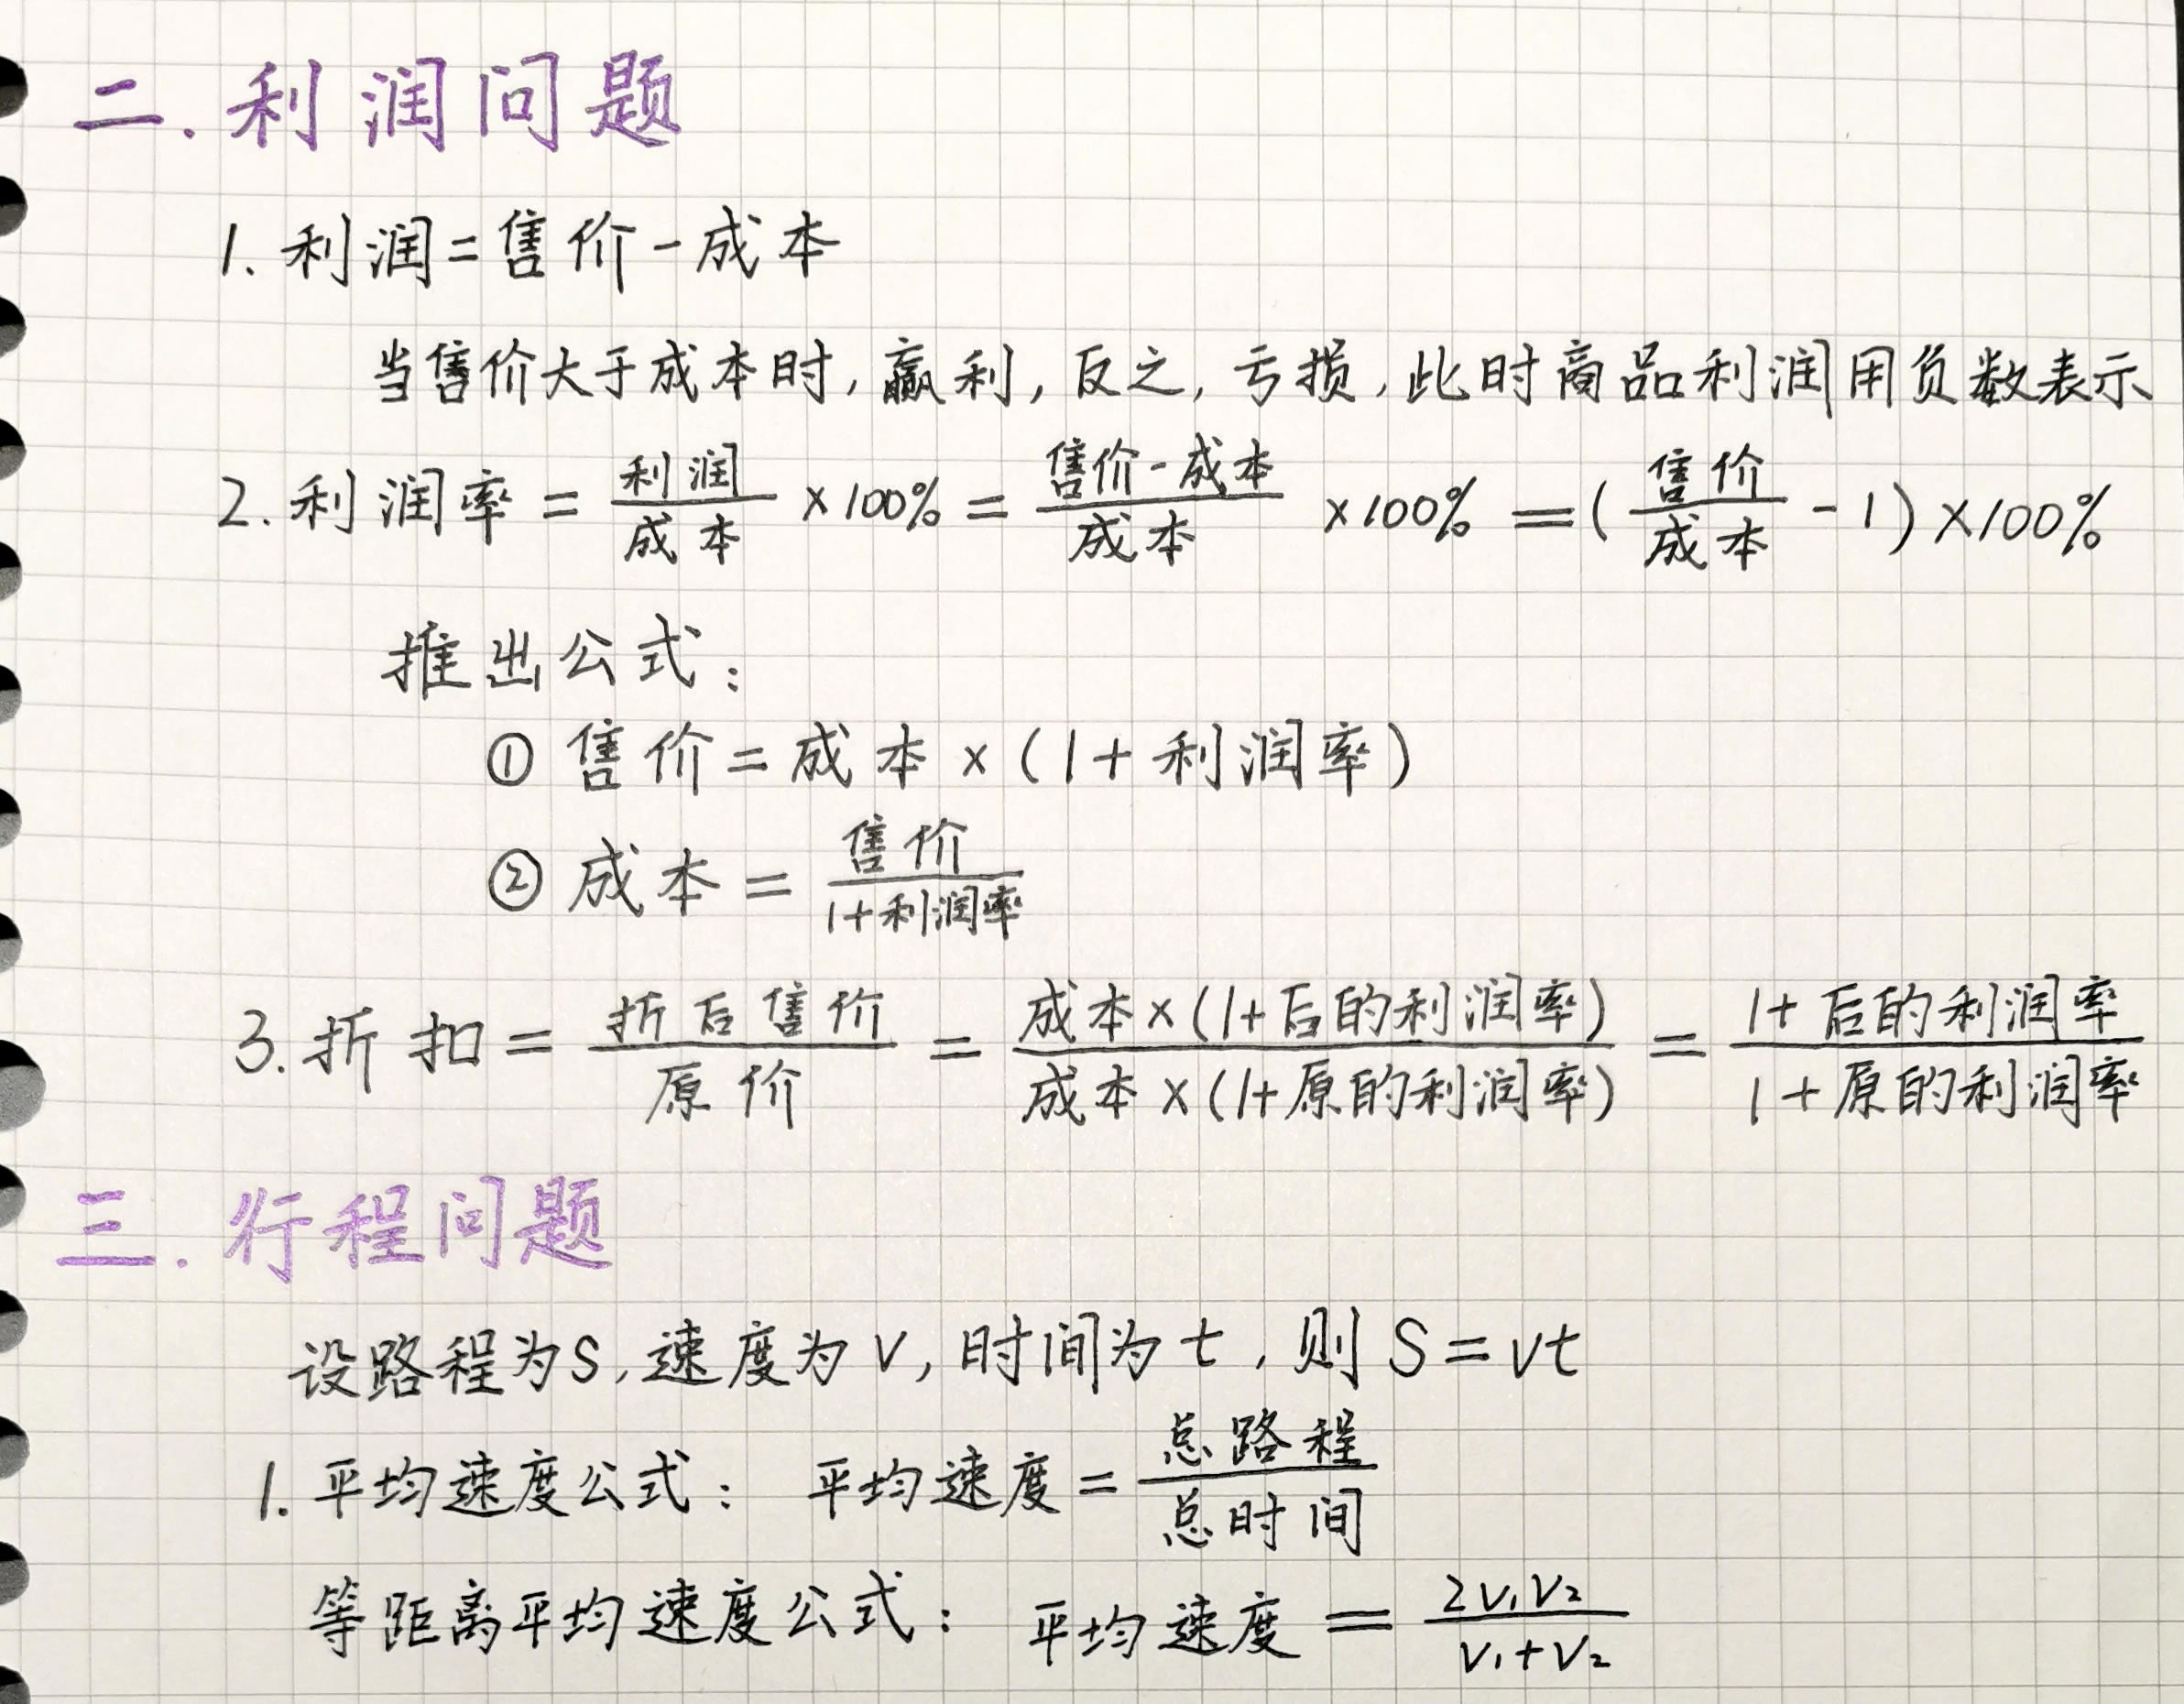 二.利润问题
1.利润=售价-成本
当售价大于成本时,赢利,反之,亏损,此时商品利润用负数表示
2.利润率=利润/成本×100%=售价-成本/成本×100%=(售价/成本-1)×100%
推出公式:
①售价=成本×(1+利润率)
②成本=售价/1+利润率
3.折扣=折后售价/原价=成本×(1+后的利润率)/成本×(1+原的利润率)=1+后的利润率/1+原的利润率
三.行程问题
设路程为S,速度为V,时间为t,则S=vt
1.平均速度公式: 平均速度=总路程/总时间
等距离平均速度公式: 平均速度=2V₁V₂/V₁+V₂